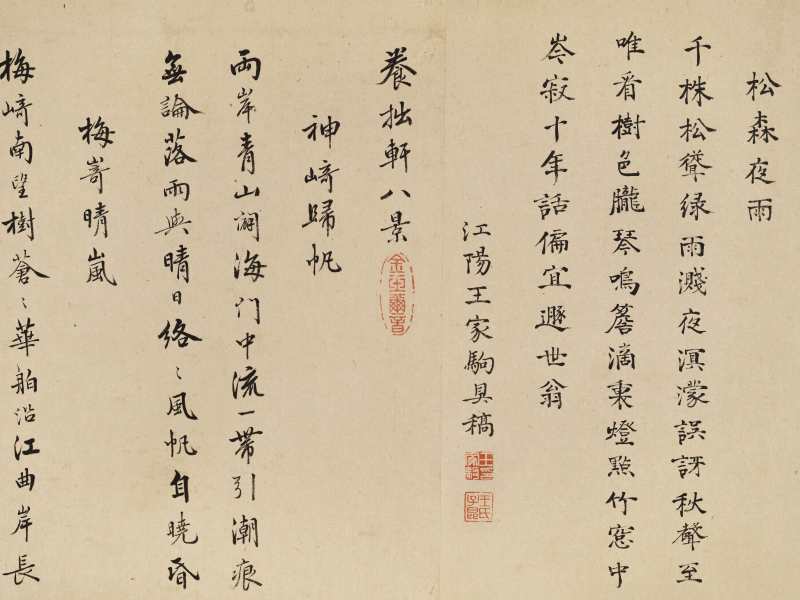 松森夜雨
千株松聳綠雨濺夜溟濛誤訝秋聲至
唯看樹色朧琴鳴簷滴裏燈點竹窓中
岑寂十年話偏宜遯世翁
江陽王家駒具稿
養拙軒八景
金玉爾音
神﨑歸帆
兩岸青山闢海门中流一帶引潮痕
無論落雨與晴日絡〻風帆自曉昏
梅嵜晴嵐
梅﨑南望樹蒼〻華舶沿江曲岸長